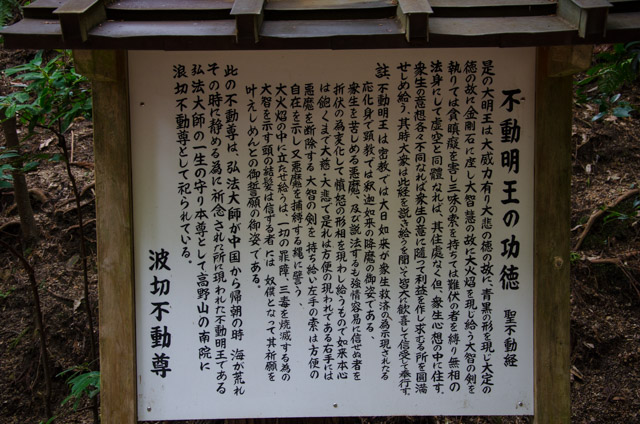 不動明王の功徳　聖不動経
是の大明王は大威力有り大悲の徳の故に、青黒の形を現じ大定の
徳の故に金剛石に座し大智慧の故に大火焔を現じ給う大智の剣を
執りては貪瞋癡を害し三昧の索を持ちては難伏の者を縛り無相の
法身にして虚空と同體なれば、其住處なく但、衆生心想の中に住す、
衆生の意想各々不同なれば衆生の意に随って利益を作し求むる所を圓満
せしめ給う、其時大衆は此経を説き給うを聞いて皆大に歓喜して信受して奉行す、
註、不動明王は密教では大日如来が衆生救済の為示現されたる
応化身で顕教では釈迦如来の降魔の御姿である、
衆生を苦しめる悪魔、及び説法するも強情容易に信ぜぬ者を
折伏の為変化して憤怒の形相を現わし給うもので如来本心
は飽くまで大慈・大悲で是れは方便の現われである右手には
悪魔を断除する大智の剣を持ち給い左手の索は方便の
自在を示し又悪魔を捕縛する縄に譬う、
大火焔の中に立たせ給うは、一切の罪障、三毒を焼滅する為の
大智を示す頭の結髪は信ずる者には奴僕となって其祈願を
叶えしめんとの御誓願の御姿である。
此の不動尊は弘法大師が中国から帰朝の時海が荒れ
その時に静める為に祈念された所に現われた不動明王である
弘法大師の一生の守り本尊として高野山の南院に
浪切不動尊として祀られている。
波切不動尊